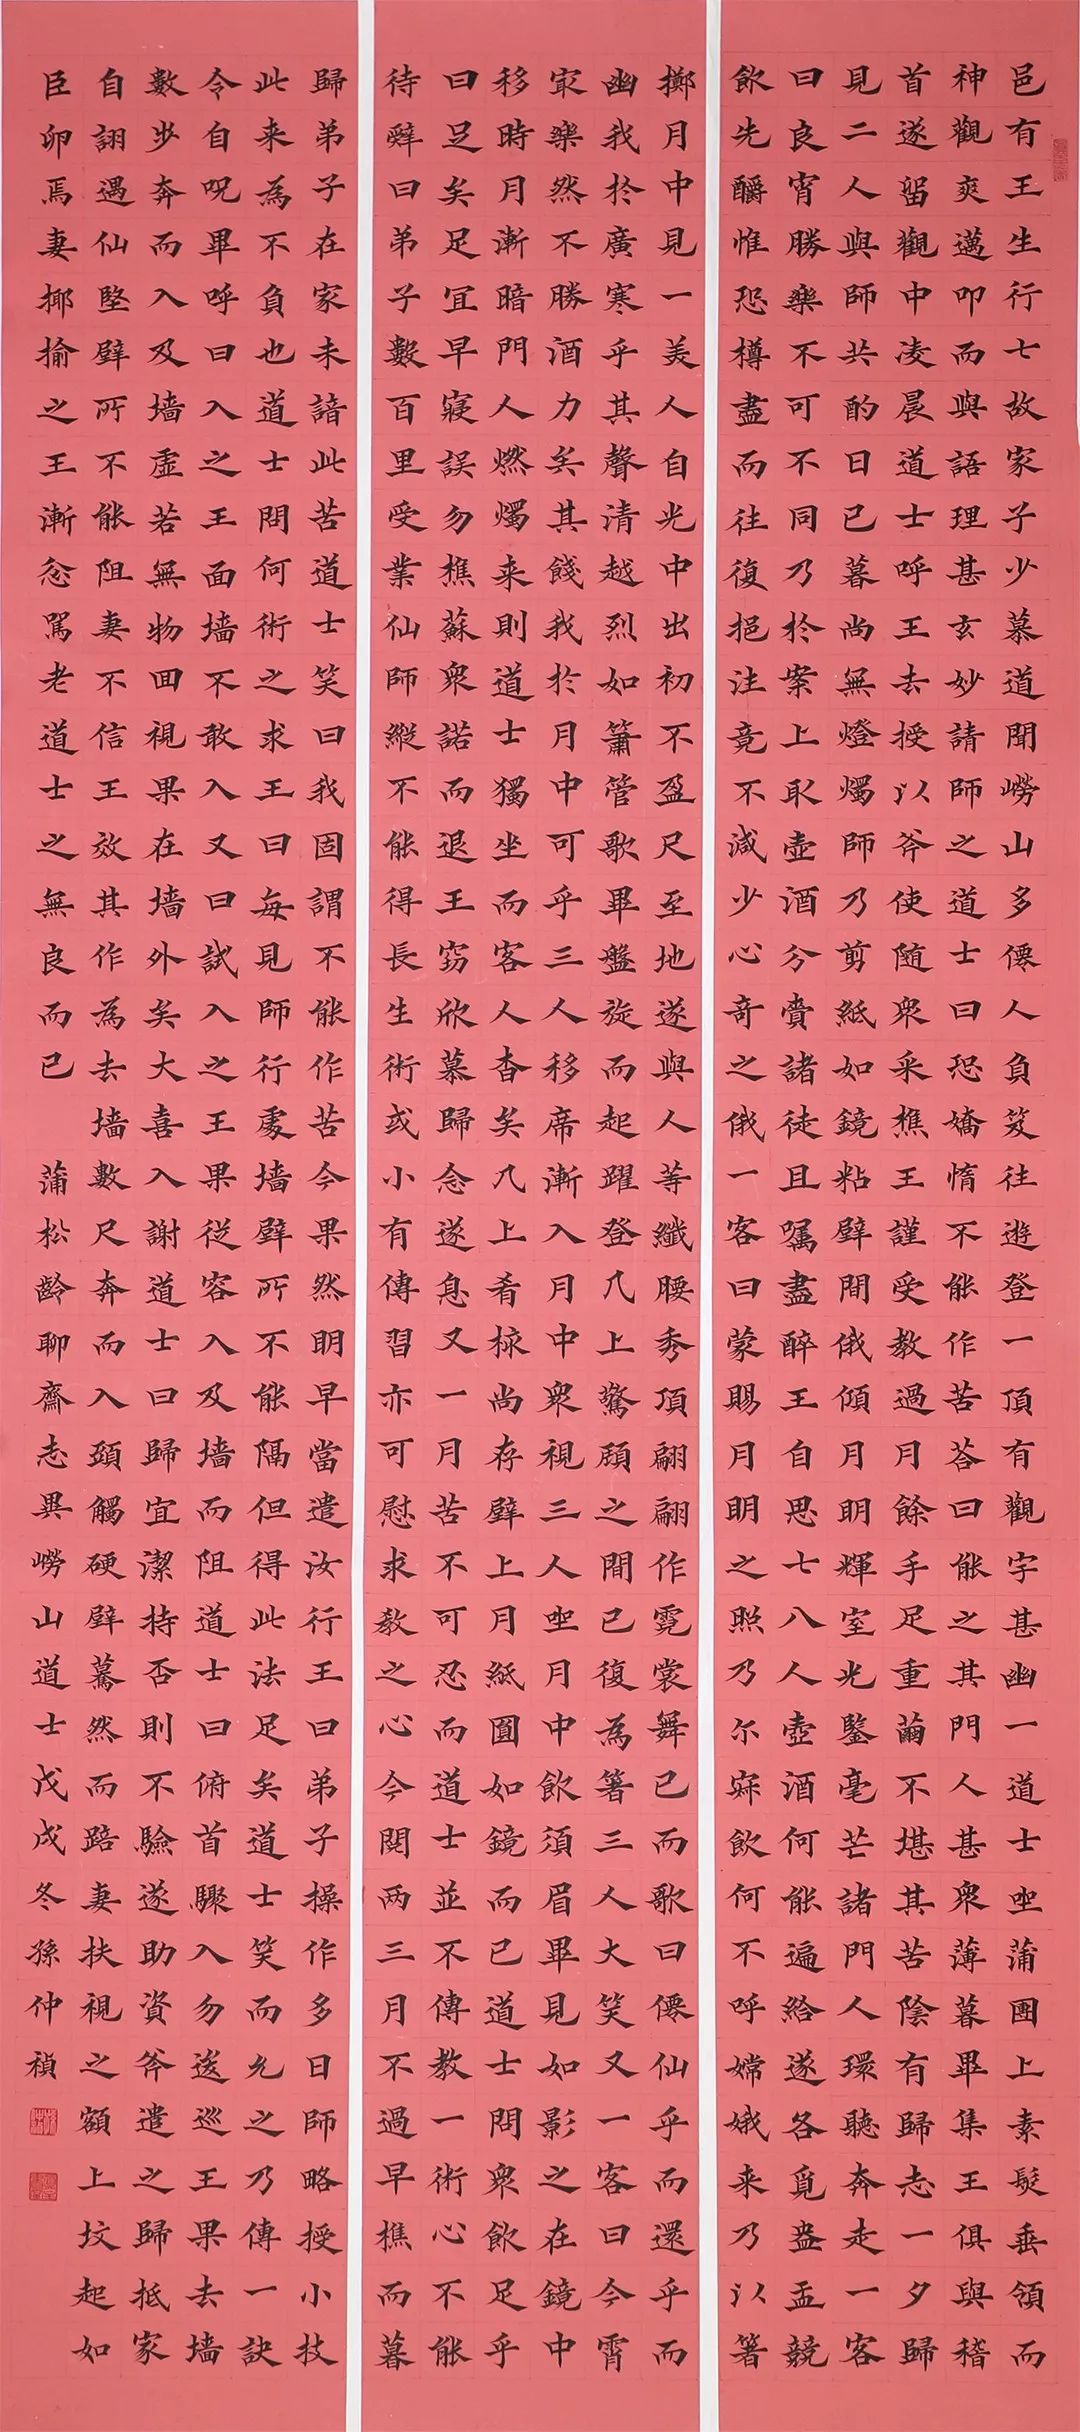 邑有王生行七故家子少慕道聞嶗山多僊人負笈往遊登一頂有觀宇甚幽一道士坐蒲團上素髮垂領而
神觀爽邁叩而與語理甚玄妙請師之道士曰恐嬌惰不能作苦荅曰能之其門人甚衆薄暮畢集王俱與稽
首遂留觀中凌晨道士呼王去授以斧使隨衆采樵王謹受教過月餘手足重繭不堪其苦陰有歸志一夕歸
見二人與師共酌日已暮尚無燈燭師乃剪紙如鏡粘壁間俄傾月明輝室光鑒毫芒諸門人環聽奔走一客
曰良宵勝樂不可不同乃於案上取壺酒分賚諸徒且囑盡醉王自思七八人壺酒何能遍給遂各覓盎盂競
飲先釂惟恐樽盡而往復挹注竟不減少心奇之俄一客曰蒙賜月明之照乃尔寂飲何不呼嫦娥来乃以箸
擲月中見一美人自光中出初不盈尺至地遂與人等纖腰秀頂翩翩作霓裳舞已而歌曰僊仙乎而還乎而
幽我於廣寒乎其聲清越烈如簫管歌畢盤旋而起躍登几上驚顧之間已復為箸三人大笑又一客曰今宵
冣樂然不勝酒力矣其餞我於月中可乎三人移席漸入月中衆視三人坐月中飲須眉畢見如影之在鏡中
移時月漸暗門人燃燭来則道士獨坐而客人杳矣几上肴核尚存壁上月紙圓如鏡而已道士問衆飲足乎
曰足矣足宜早寢誤勿樵蘇衆諾而退王竊欣慕歸念遂息又一月苦不可忍而道士並不傳教一術心不能
待辭曰弟子數百里受業仙師縱不能得長生術或小有傳習亦可慰求教之心今閱两三月不過早樵而暮
歸弟子在家未諳此苦道士笑曰我固謂不能作苦今果然明早當遣汝行王曰弟子操作多日師略授小技
此来為不負也道士問何術之求王曰每見師行處墙壁所不能隔但得此法足矣道士笑而允之乃傳一訣
令自呪畢呼曰入之王面墙不敢入又曰試入之王果從容入及墙而阻道士曰俯首驟入勿逡巡王果去墙
數步奔而入及墙虛若無物回視果在墙外矣大喜入謝道士曰歸宜潔持否則不驗遂助資斧遣之歸抵家
自詡遇仙堅壁所不能阻妻不信王效其作為去墙數尺奔而入頭觸硬壁驀然而踣妻扶視之額上墳起如
巨卵焉妻揶揄之王漸忿駡老道士之無良而已 蒲松齡聊齋志異嶗山道士戊戌冬孫仲禎